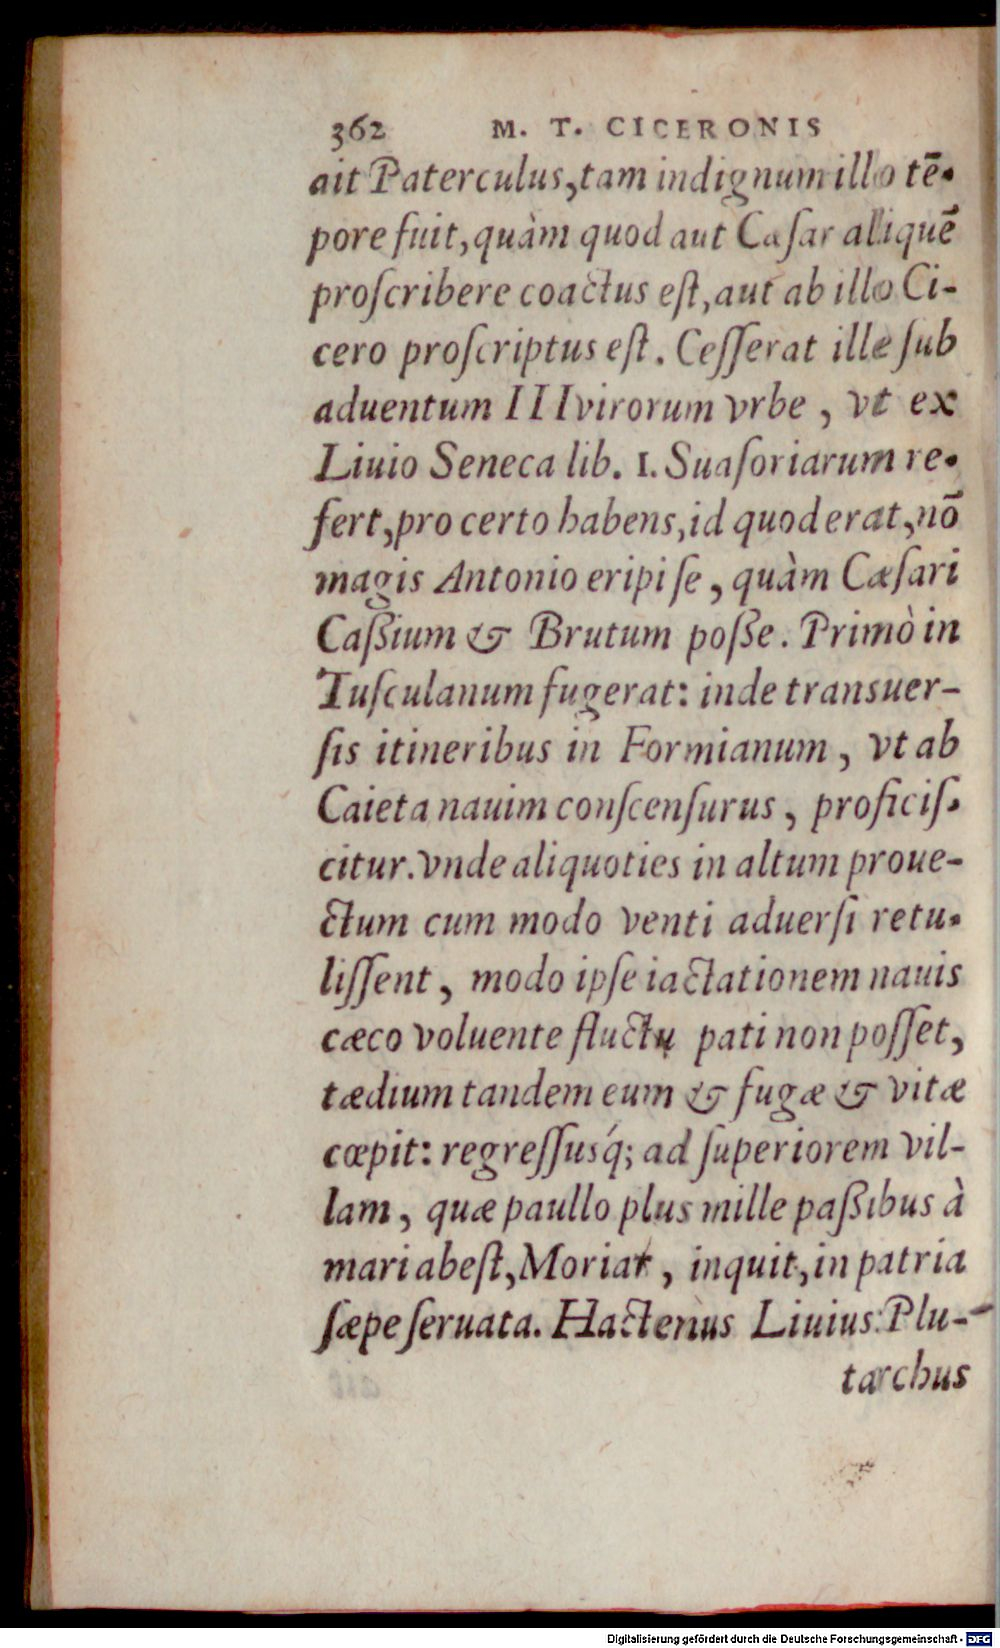 362 M. T. CICERONIS
ait Paterculus, tam indignum illo tē-
pore fuit, quàm quod aut Cæſar aliquē
proſcribere coactus eſt, aut ab illo Ci-
cero proſcriptus eſt. Ceſſerat ille ſub
aduentum IIIvirorum vrbe, vt ex
Liuio Seneca lib. I. Suaſoriarum re-
fert, pro certo habens, id quod erat, nō
magis Antonio eripi ſe, quàm Cæſari
Caßium & Brutum poße. Primò in
Tuſculanum fugerat: inde transuer-
ſis itineribus in Formianum, vt ab
Caieta nauim conſcenſurus, proficiſ-
citur. vnde aliquoties in altum proue-
ctum cum modo venti aduerſi retu-
liſſent, modo ipſe iactationem nauis
cæco voluente fluctu pati non poſſet,
tædium tandem eum & fugæ & vitæ
cœpit: regreſſusq́; ad ſuperiorem vil-
lam, quæ paullo plus mille paßibus à
mari abeſt, Moriar, inquit, in patria
ſæpe ſeruata. Hactenus Liuius: Plu-
tarchus
Digitalisierung gefördert durch die Deutsche Forschungsgemeinschaft - DFG